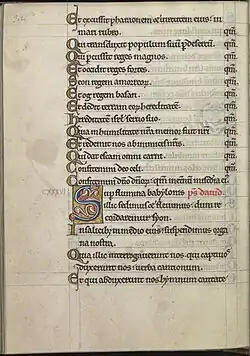 Et excussit pharaonem et uirtutem eius in
mari rubro. qm̄.
Qui transduxit populum suū p̄ desertū. qm̄.
Qui percussit reges magnos. qm̄.
Et occidit reges fortes. qm̄.
Seon regem amorreoꝝ. qm̄.
Et og regem basan. qm̄.
Et dedit terram eoꝝ hereditatē. qm̄.
Hereditatē isrl̄ seruo suo. qm̄.
Quia in humilitate nr̄a memor fuit nr̄i qm̄.
Et redemit nos ab inimicis nr̄is. qm̄.
Qui dat escam omni carni. qm̄.
Confitemini deo celi. qm̄.
Confitemini dn̄o dn̄oꝝ: qm̄ in et̄nū
Sup flumina babylonis p̄s dauid.
illic sedimus et fleuimus: dum re
cordaremur syon.
In salicib; in medio eius: suspendimus orga
na nostra.
Quia illic interrogauerunt nos: qui captiuos
duxerunt nos: uerba cantionum.
Et qui abduxerunt nos: hymnum cantate